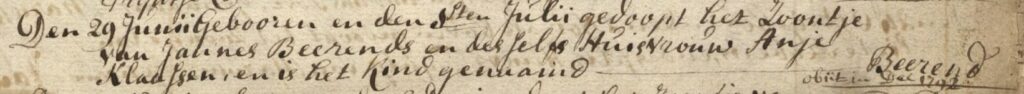 Den 29 Junii Gebooren en den 8sten Julii gedoopt het Zoontje
van Jannes Beerends en desselfs Huisvrouw Anje
Klaassen, en is het Kind genaamd Beerend
obiit in Dec 1792